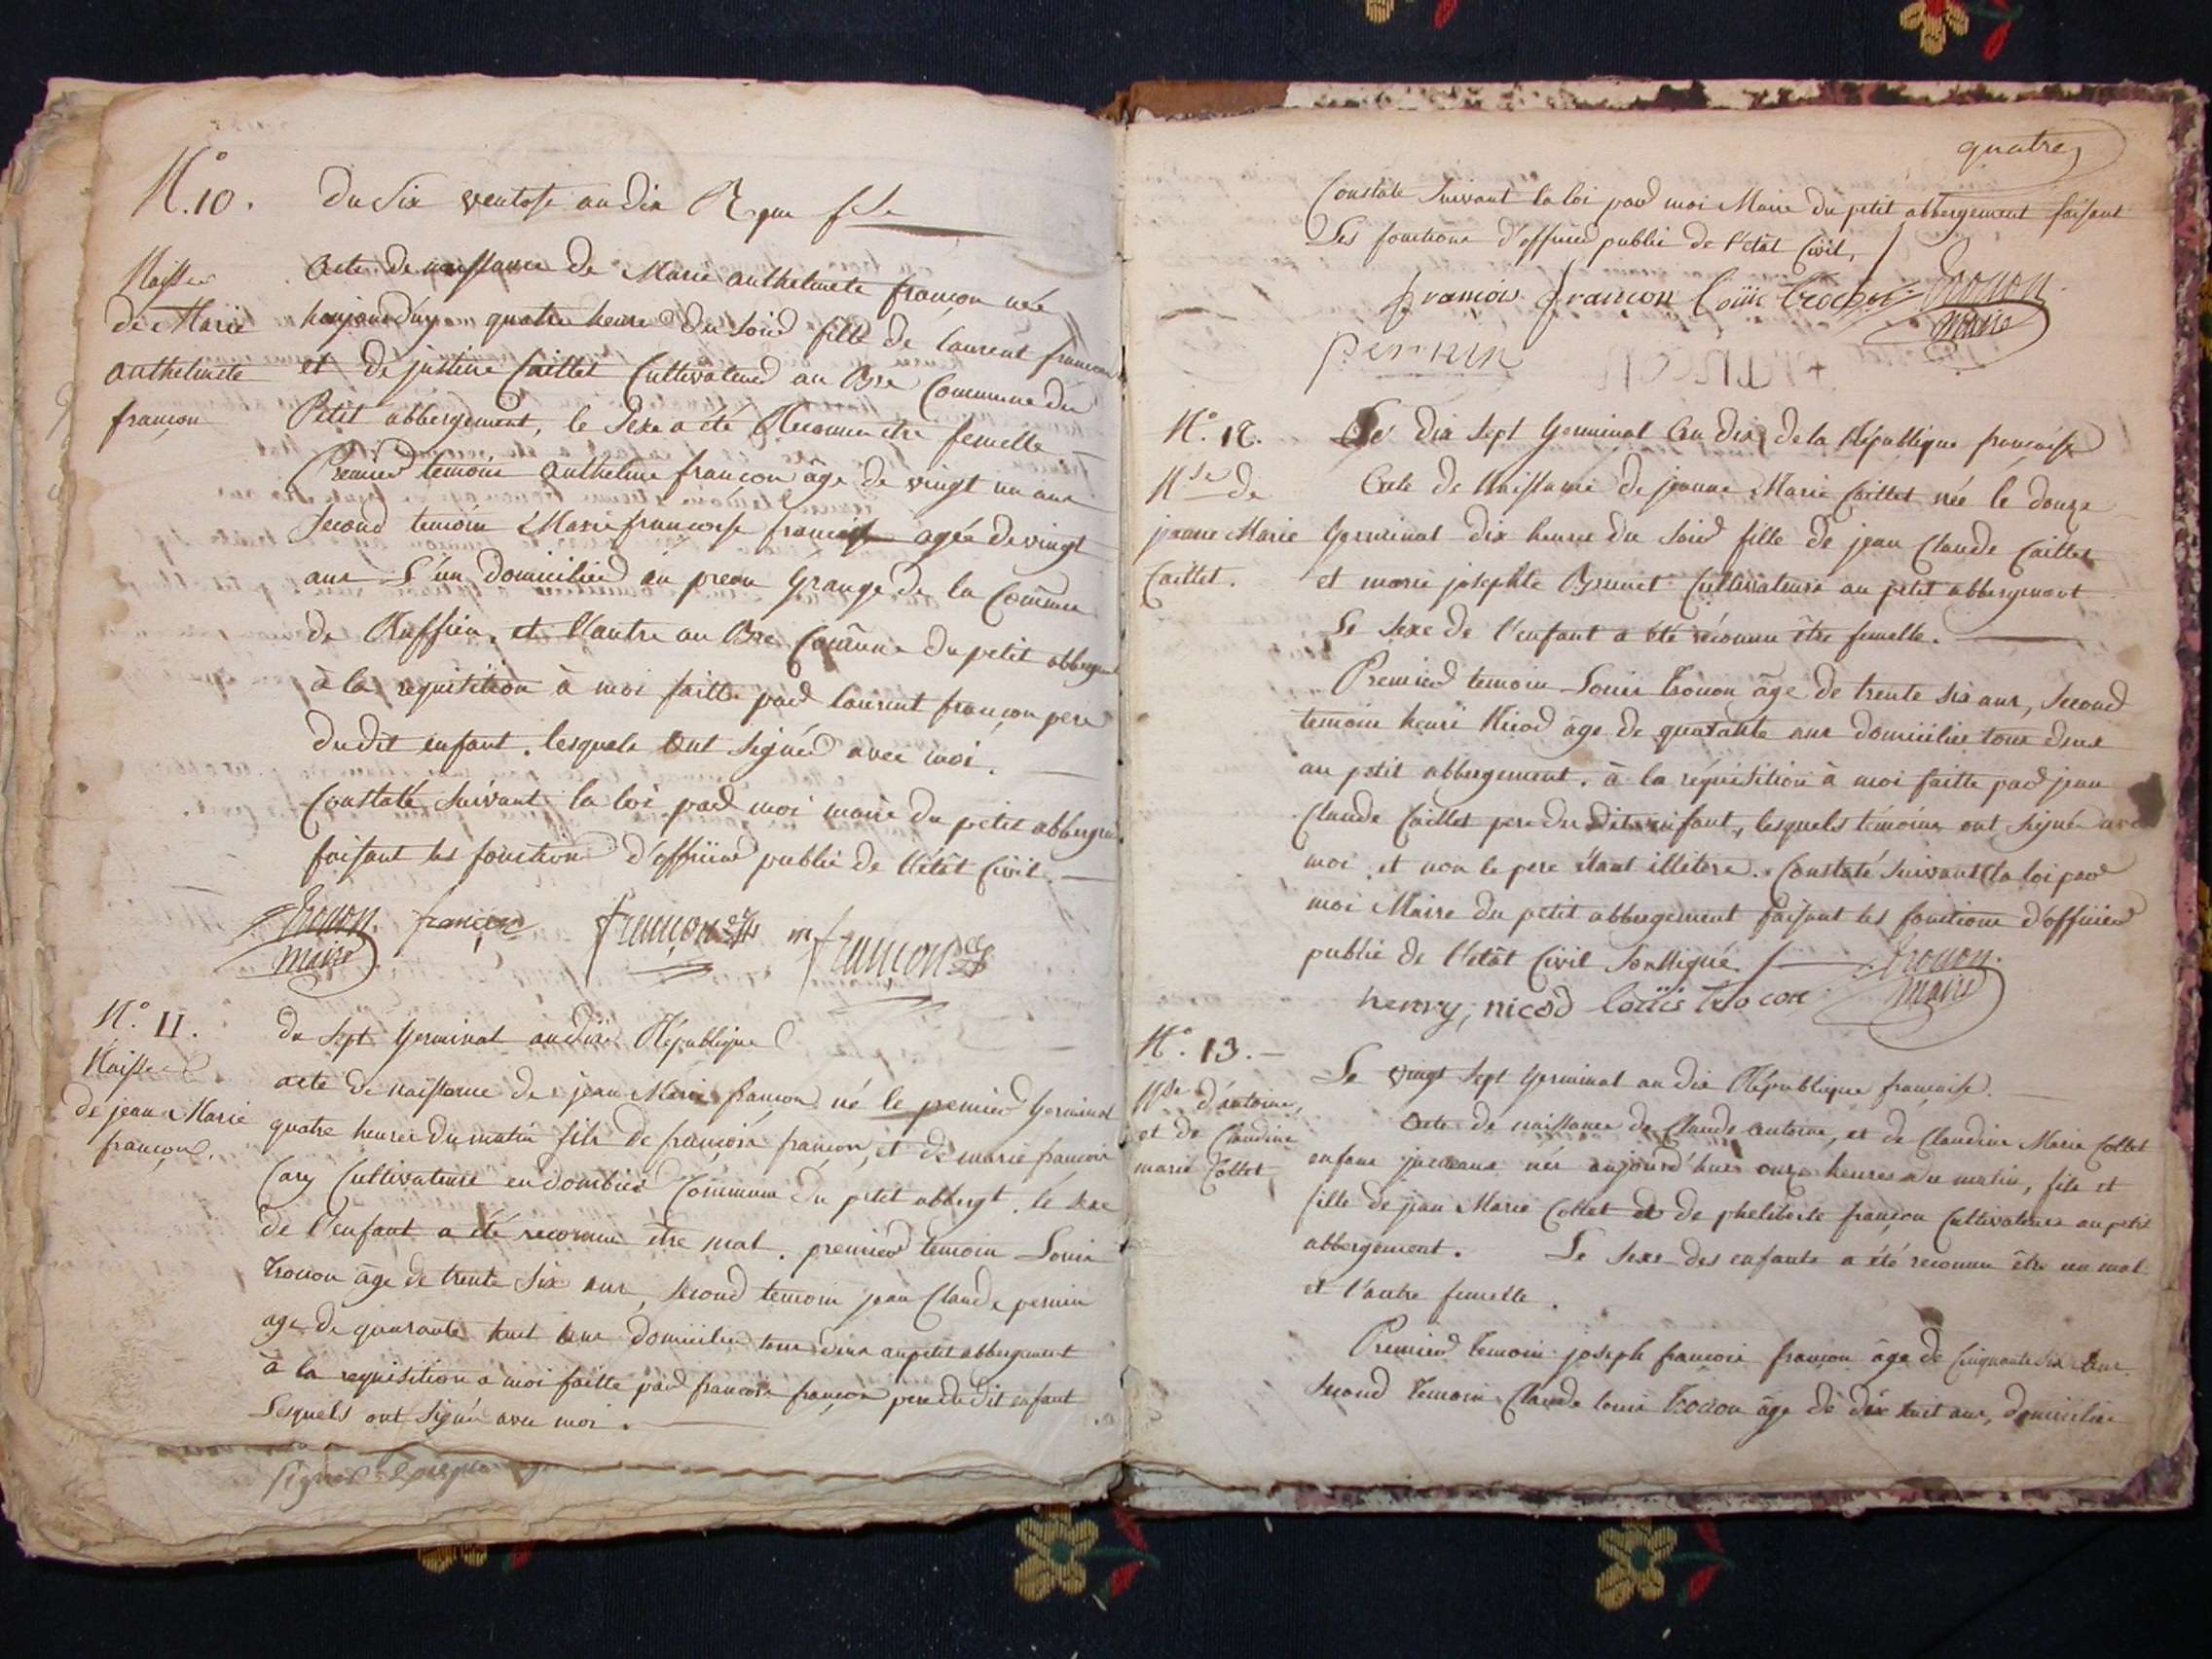 N.° 10. Du Six ventose an dix Rque fse
Naissce
de Marie
anthelmete
françon
Acte de naissance de Marie anthelmete françon née
haujourduy quatre heure du soir fille de laurent françon
et de justine Caillet Cultivateur au Commune du
Petit abbergement, le Sexe a été Reconnu être femelle
Premier temoin anthelme françon âge de vingt un ans
Second temoin Marie françoise françon agée de vingt
ans L'un domicilier au Grange de la Commune
de Ruffieu, et l'autre au Commune du petit abbergemt
à la requisition à moi faitte par laurent françon pere
dudit enfant. lesquels ont signés avec moi.
Constaté suivant la loi par moi maire du petit abbergemt
faisant les fonctions d'officier public de l'étât Civil.
Trocon. françon françon françon
maire
N.° 11.
Naissce
de jean Marie
françon.
du sept Germinal an dix République
acte de naissance de jean Marie françon né le premier Germinal
quatre heures du matin fils de françois françon, et de marie françoise
Cary Cultivateurs en dombier Commune du petit abbergt. le sexe
de l'enfant a été reconnu être mal. premier temoin Louis
Trocon âge de trente six ans, second temoin jean Claude perrin
age de quarante huit ans domicilier tous deux au petit abbergement
à la requisition a moi faitte par françois françon pere dudit enfant
Lesquels ont signés avec moi.
quatre
Constate suivant la loi par moi Maire du petit abbergement faisant
Les fonctions d'officier public de l'étât Civil.
françois françon Louis Trocon Trocon
maire
perrin
N.° 12.
Nse de
jeanne Marie
Caillet.
Le dix sept Germinal An dix de la République française
Acte de Naissance de jeanne Marie Caillet née le douze
Germinal dix heures du soir fille de jean Claude Caillet
et marie josephte Brunet Cultivateurs au petit abbergement
Le sexe de l'enfant a été réconnu être femelle.
Premier temoin Louis Trocon âge de trente six ans, second
temoin henri Nicod âge de quarante ans domicilies tous deux
au petit abbergement. à la réquisition à moi faitte par jean
Claude Caillet pere du dit enfant, lesquels témoins ont signés avec
moi, et non le pere étant illitere. Constaté suivant la loi par
moi Maire du petit abbergement faisant les fonctions d'officier
public de l'étât Civil soussigné
henry, nicod louis trocon Trocon.
maire
N.° 13.
Nse d'antoine,
et de Claudine
marie Collet
Le vingt sept Germinal an dix République française.
Acte de naissance de Claude antoine, et de Claudine Marie Collet
enfans jumeaux nés aujourd'hui onze heures du matin, fils et
fille de jean Marie Collet et de pheliberte françon Cultivateurs au petit
abbergement. Le sexe des enfants a été reconnu être un mal
et l'autre femelle.
Premier temoin joseph françois françon âge de Cinquante six ans
second temoin Claude louis Trocon âge de dix huit ans, domicilies